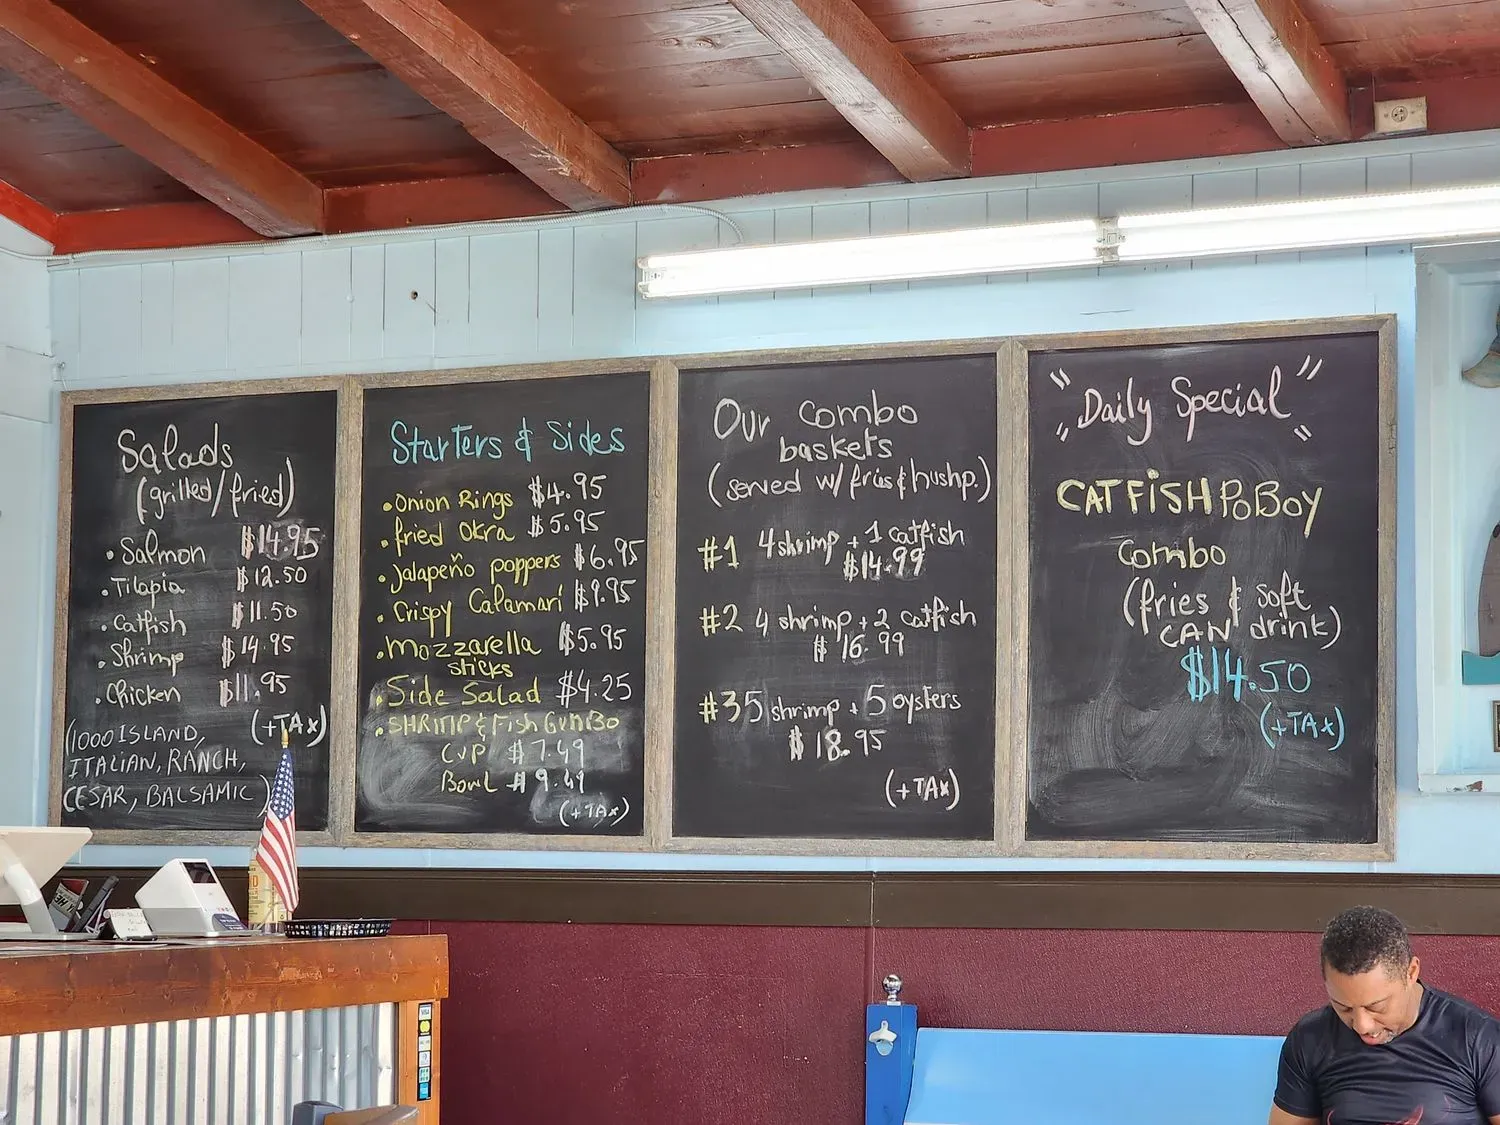 Salads
(grilled/fried)
• Salmon $14.95
• Tilapia $12.50
• Catfish $11.50
• Shrimp $14.95
• Chicken $11.95
(+TAx)
(1000 ISLAND,
ITALIAN, RANCH,
CESAR, BALSAMIC)
Starters & Sides
• Onion Rings $4.95
• fried Okra $5.95
• Jalapeño poppers $6.95
• Crispy Calamari $9.95
• Mozzarella $5.95
sticks
• Side Salad $4.25
• SHRIMP & Fish GUMBO
CUP $7.49
Bowl $9.49
(+TAx)
Our Combo
baskets
(served w/ fries & hushp.)
#1 4 shrimp + 1 catfish
$14.99
#2 4 shrimp + 2 catfish
$16.99
#3 5 shrimp + 5 oysters
$18.95
(+TAx)
"Daily Special"
CATFISH PoBOY
Combo
(fries & soft
CAN drink)
$14.50
(+TAx)
VISA